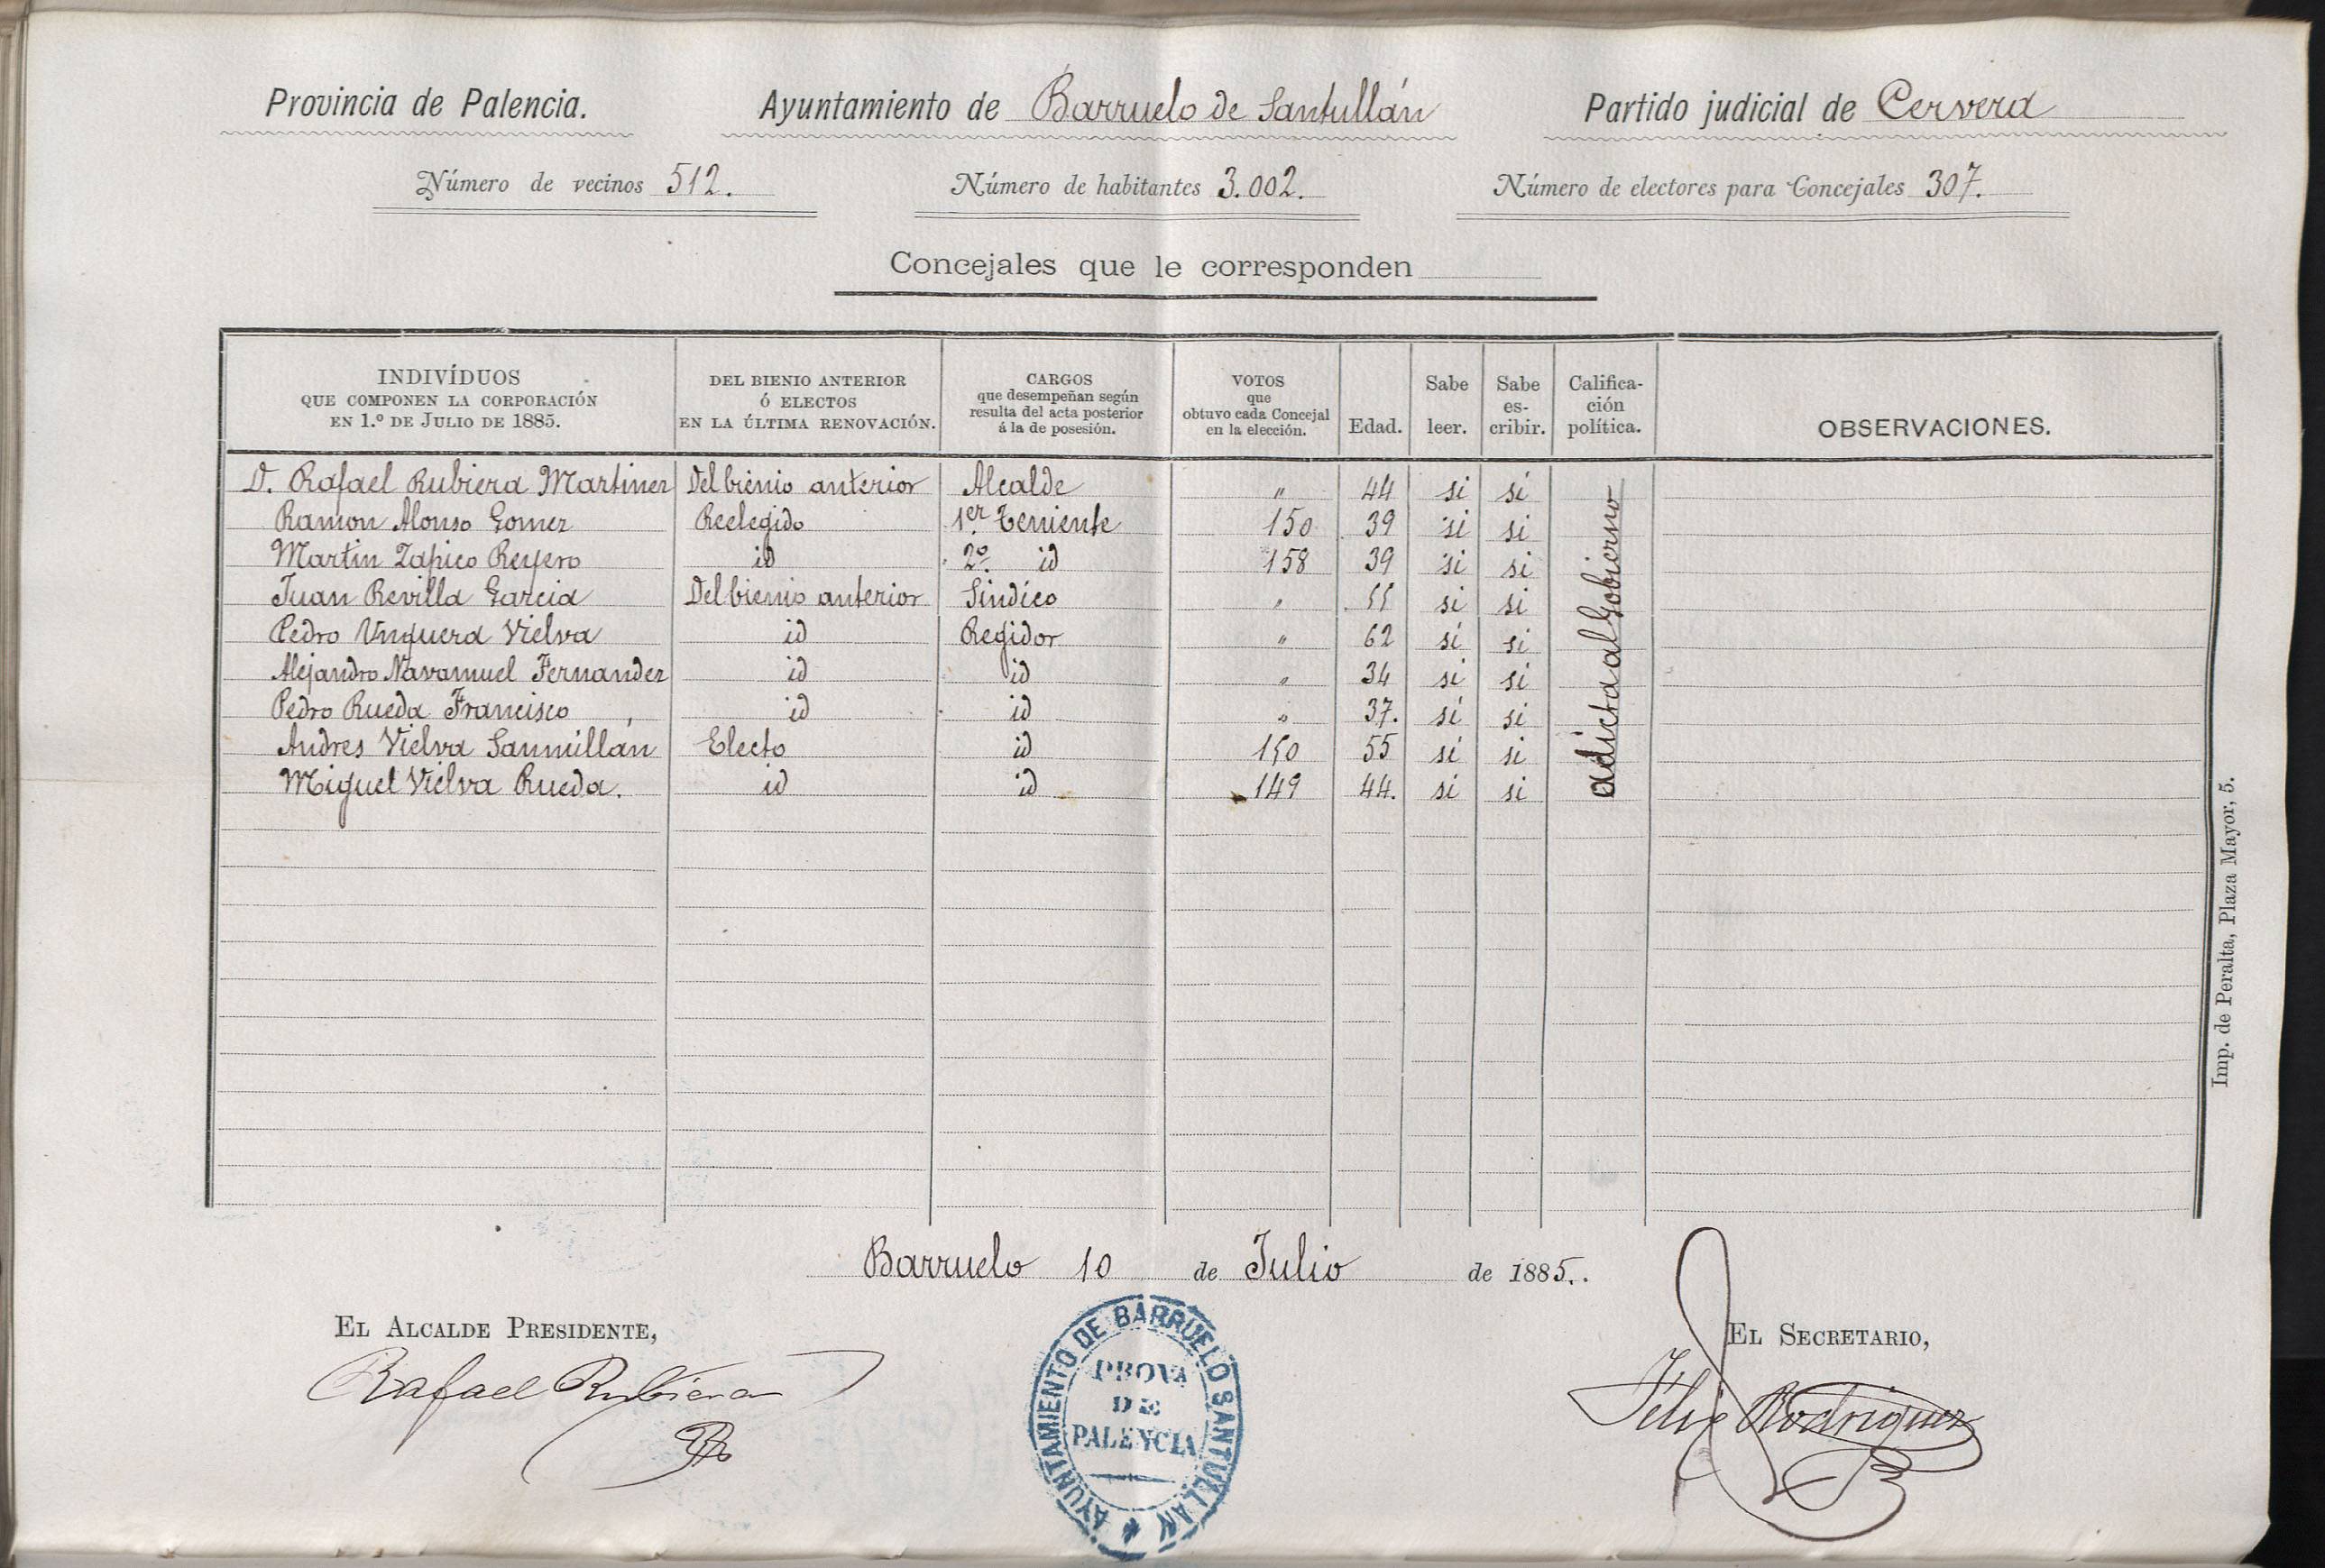 Provincia de Palencia. Ayuntamiento de Barruelo de Santullán Partido judicial de Cervera
Número de vecinos 512. Número de habitantes 3.002. Número de electores para Concejales 307.
Concejales que le corresponden
INDIVÍDUOS QUE COMPONEN LA CORPORACIÓN EN 1.º DE JULIO DE 1885. DEL BIENIO ANTERIOR Ó ELECTOS EN LA ÚLTIMA RENOVACIÓN. CARGOS que desempeñan según resulta del acta posterior á la de posesión. VOTOS que obtuvo cada Concejal en la elección. Edad. Sabe leer. Sabe es-cribir. Califica-ción política. OBSERVACIONES.
D. Rafael Rubiera Martinez Del bienio anterior Alcalde " 44 si si
Ramon Alonso Gomez Reelegido 1er Teniente 150 39 si si
Martin Zapico Reyero id 2º id 158 39 si si
Juan Revilla Garcia Del bienio anterior Sindico " 55 si si
Pedro Unquera Vielva id Regidor " 62 si si
Alejandro Navamuel Fernandez id id " 34 si si
Pedro Rueda Francisco id id " 37. si si
Andres Vielva Sanmillán Electo id 150 55 si si
Miguel Vielva Rueda. id id 149 44. si si
adicta al Gobierno
Imp. de Peralta, Plaza Mayor, 5.
Barruelo 10 de Julio de 1885.
EL ALCALDE PRESIDENTE, EL SECRETARIO,
Rafael Rubiera Félix Rodriguez
AYUNTAMIENTO DE BARRUELO SANTULLAN
PROVA
DE
PALENCIA